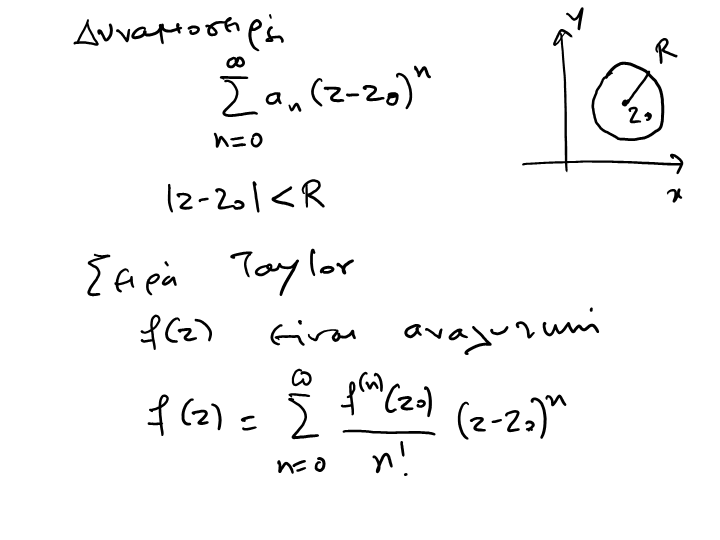 Δυναμοσειρά
∞
∑ aₙ (z-z₀)ⁿ
n=0
y
R
z₀
x
|z-z₀| < R
Σειρά Taylor
f(z) είναι αναλυτική
f(z) = ∑_{n=0}^{∞} f⁽ⁿ⁾(z₀)/n! (z-z₀)ⁿ